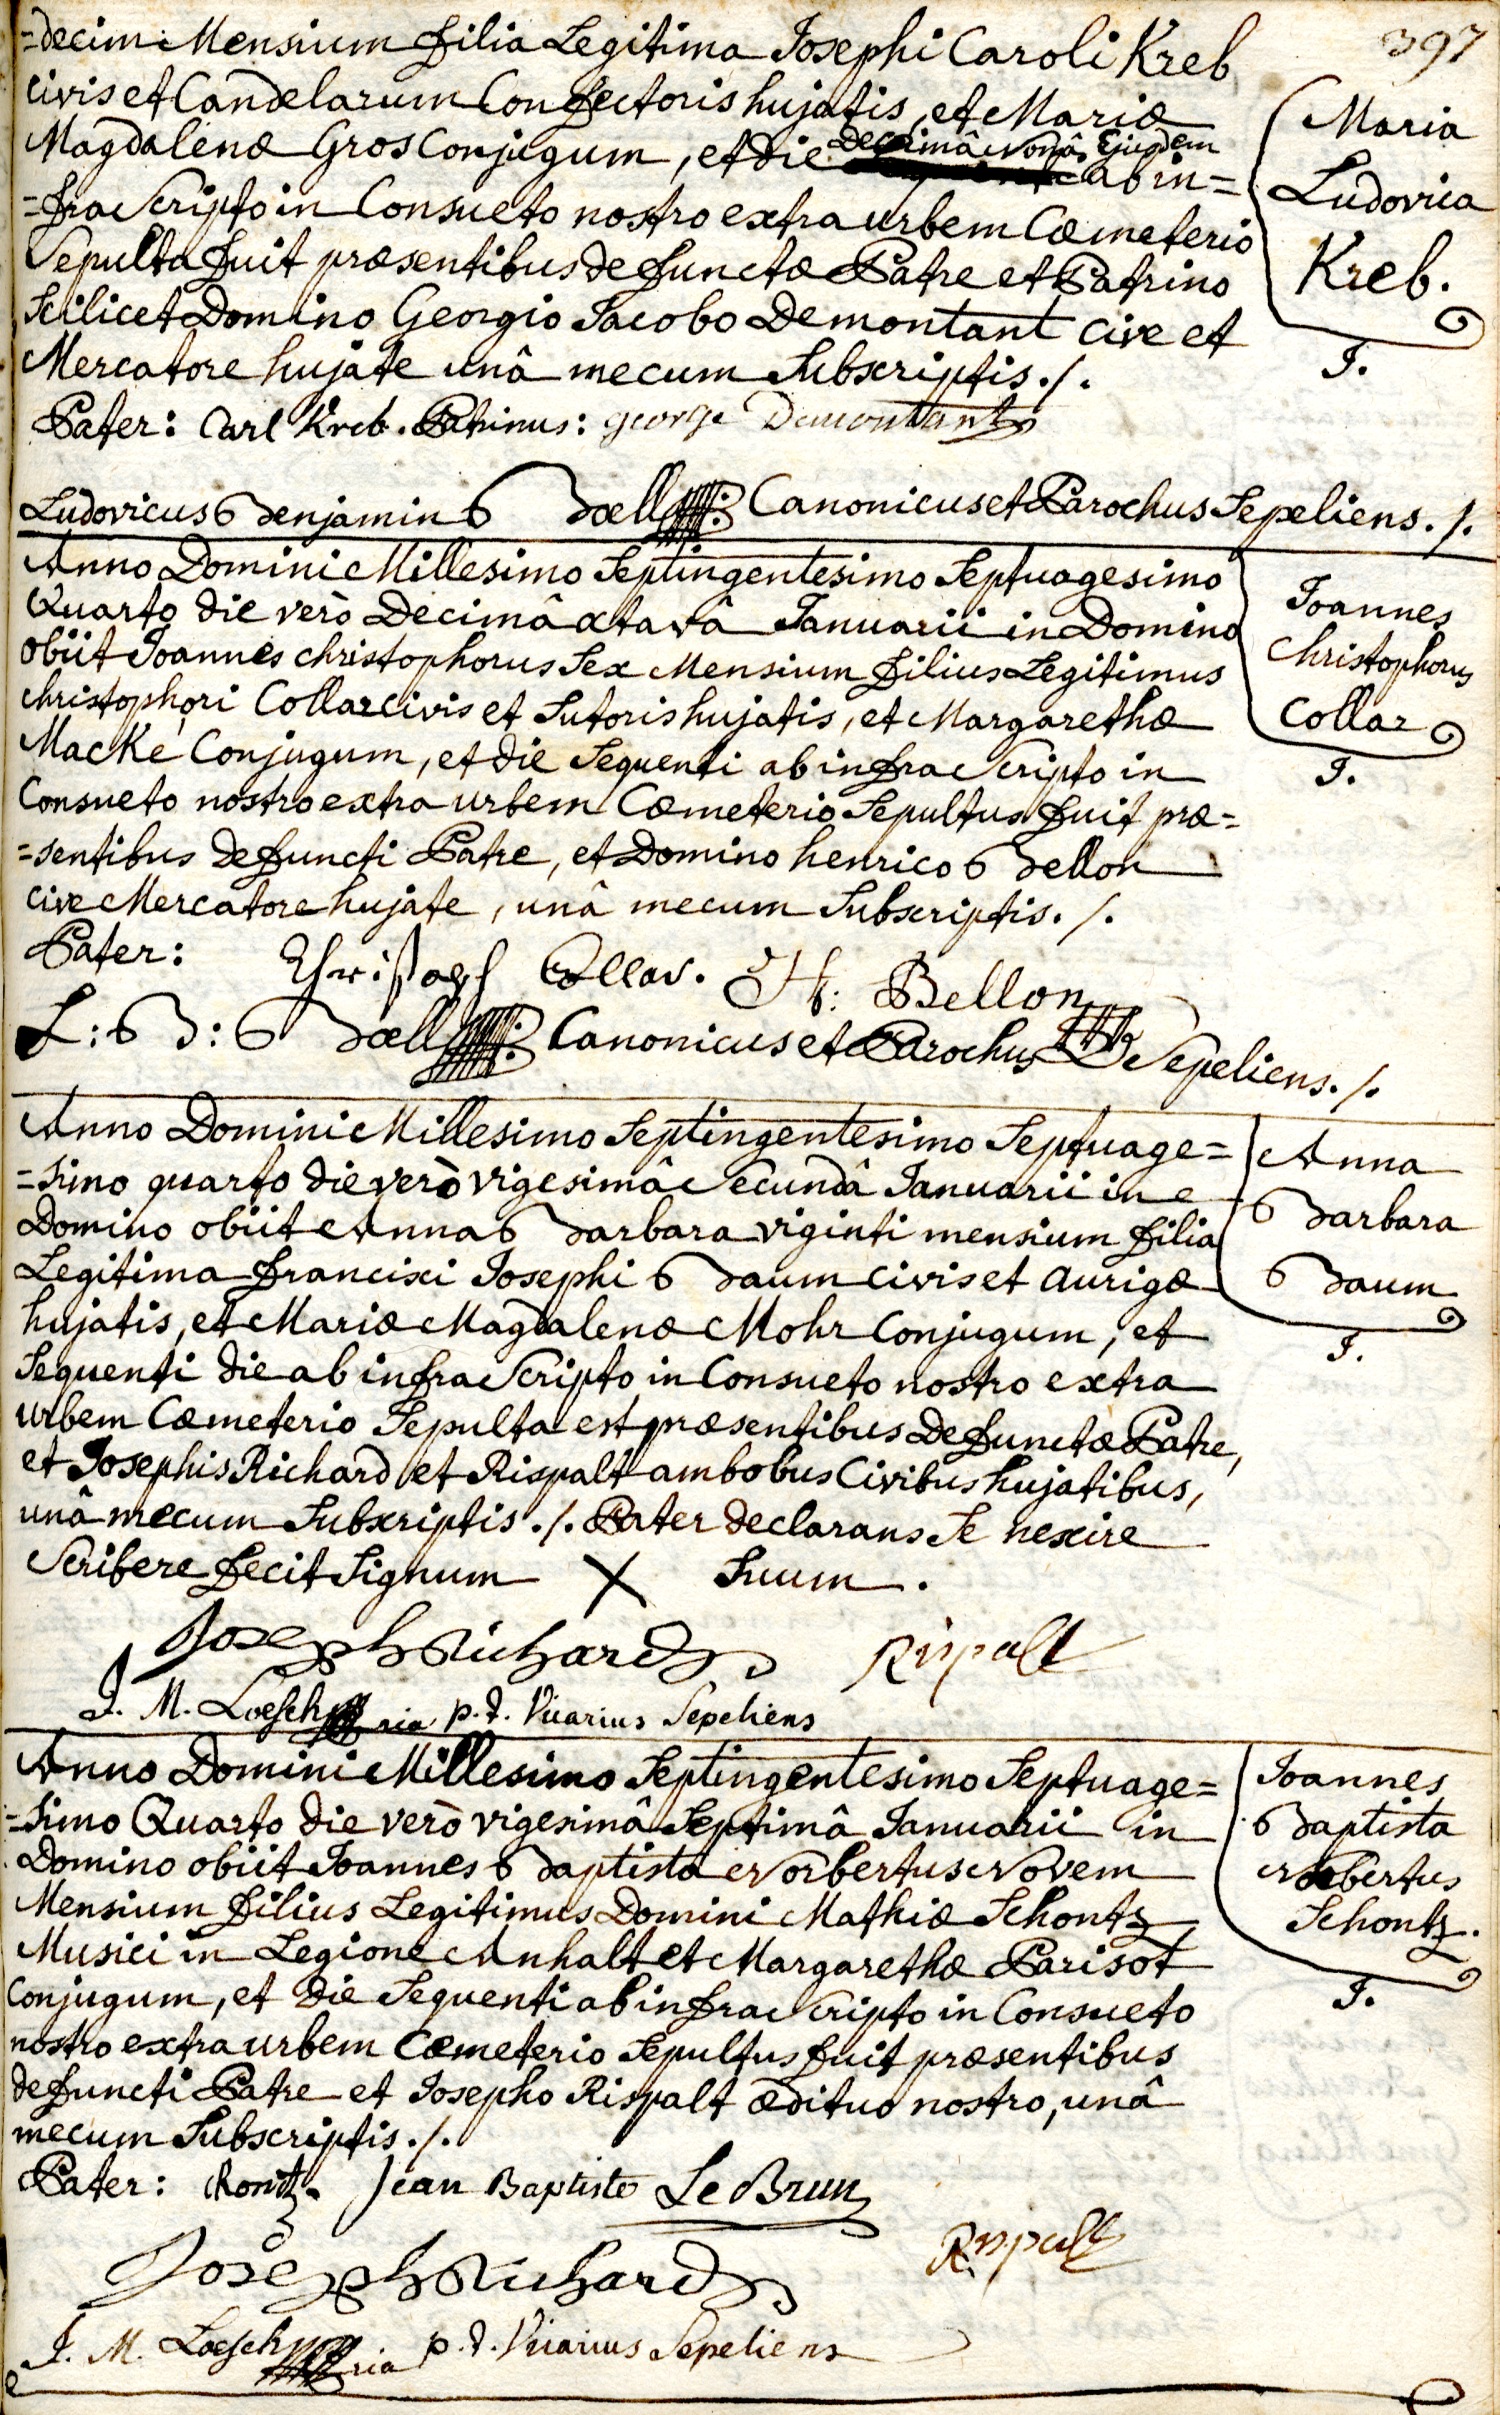 397
=decim Mensium filia Legitima Josephi Caroli Kreb
civis et Candelarum Confectoris hujatis, et Mariæ
Magdalenæ Gros Conjugum, et die Decimâ Nonâ Ejusdem ab in=
=fra Scripto in Consueto nostro extra urbem Cœmeterio
Sepulta fuit præsentibus defunctæ Patre et Patrino
Scilicet Domino Georgio Jacobo Demontant cive et
Mercatore hujate unâ mecum Subscriptis ./.
Maria
Ludovica
Kreb.
J.
Pater: Carl Kreb. Patrinus: george Demontant
Ludovicus Benjamin Bœll Canonicus et Parochus Sepeliens ./.
Anno Domini Millesimo Septingentesimo Septuagesimo
Quarto die verò Decimâ octavâ Januarii in Domino
obiit Joannes christophorus Sex Mensium filius Legitimus
christophori Collar civis et Sutoris hujatis, et Margarethæ
Macke Conjugum, et die Sequenti ab infra Scripto in
Consueto nostro extra urbem Cœmeterio Sepultus fuit præ=
=sentibus defuncti Patre, et Domino henrico Bellon
cive Mercatore hujate, unâ mecum Subscriptis ./.
Joannes
Christophorus
Collar
J.
Pater: Christoph Collar. H: Bellon
L: B: Bœll Canonicus et Parochus Sepeliens ./.
Anno Domini Millesimo Septingentesimo Septuage=
=simo quarto die verò vigesimâ Secundâ Januarii in
Domino obiit Anna Barbara viginti mensium filia
Legitima francisci Josephi Baum civis et aurigæ
hujatis, et Mariæ Magdalenæ Mohr Conjugum, et
Sequenti die ab infra Scripto in Consueto nostro extra
urbem Cœmeterio Sepulta est præsentibus Defunctæ Patre,
et Josephis Richard et Rispalt ambobus Civibus hujatibus,
unâ mecum Subscriptis ./. Pater declarans Se nescire
Scribere fecit Signum X Suum.
Anna
Barbara
Baum
J.
Joseph Richard Rispalt
J. M. Loesch p. t. Vicarius Sepeliens
Anno Domini Millesimo Septingentesimo Septuage=
=simo Quarto die verò vigesimâ Septimâ Januarii in
Domino obiit Joannes Baptista Norbertus Novem
Mensium filius Legitimus Domini Mathiæ Schontz
Musici in Legione Anhalt et Margarethæ Parisot
Conjugum, et die Sequenti ab infra Scripto in Consueto
nostro extra urbem Cœmeterio Sepultus fuit præsentibus
defuncti Patre et Josepho Rispalt ædituo nostro, unâ
mecum Subscriptis ./.
Joannes
Baptista
Norbertus
Schontz.
J.
Pater: Jean Baptiste Le Brun
Joseph Richard Rispalt
J. M. Loesch p. t. Vicarius Sepeliens